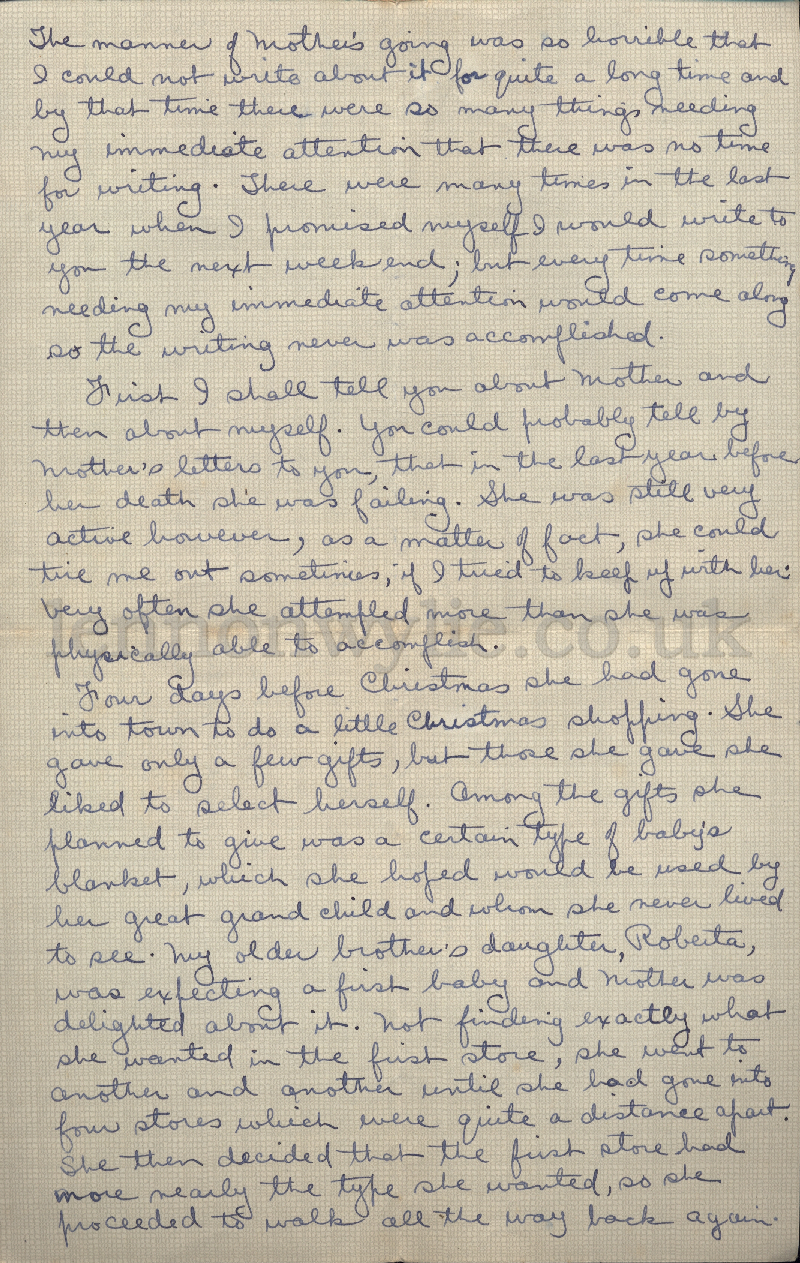 The manner of Mother's going was so horrible that
I could not write about it for quite a long time and
by that time there were so many things needing
my immediate attention that there was no time
for writing. There were many times in the last
year when I promised myself I would write to
you the next week end; but every time something
needing my immediate attention would come along
so the writing never was accomplished.
First I shall tell you about Mother and
then about myself. You could probably tell by
Mother's letters to you, that in the last year before
her death she was failing. She was still very
active however, as a matter of fact, she could
tire me out sometimes, if I tried to keep up with her.
Very often she attempted more than she was
physically able to accomplish.
lennonwylie.co.uk
Four days before Christmas she had gone
into town to do a little Christmas shopping. She
gave only a few gifts, but those she gave she
liked to select herself. Among the gifts she
planned to give was a certain type of baby's
blanket, which she hoped would be used by
her great grand child and whom she never lived
to see. My older brother's daughter, Roberta,
was expecting a first baby and Mother was
delighted about it. Not finding exactly what
she wanted in the first store, she went to
another and another until she had gone into
four stores which were quite a distance apart.
She then decided that the first store had
more nearly the type she wanted, so she
proceeded to walk all the way back again.